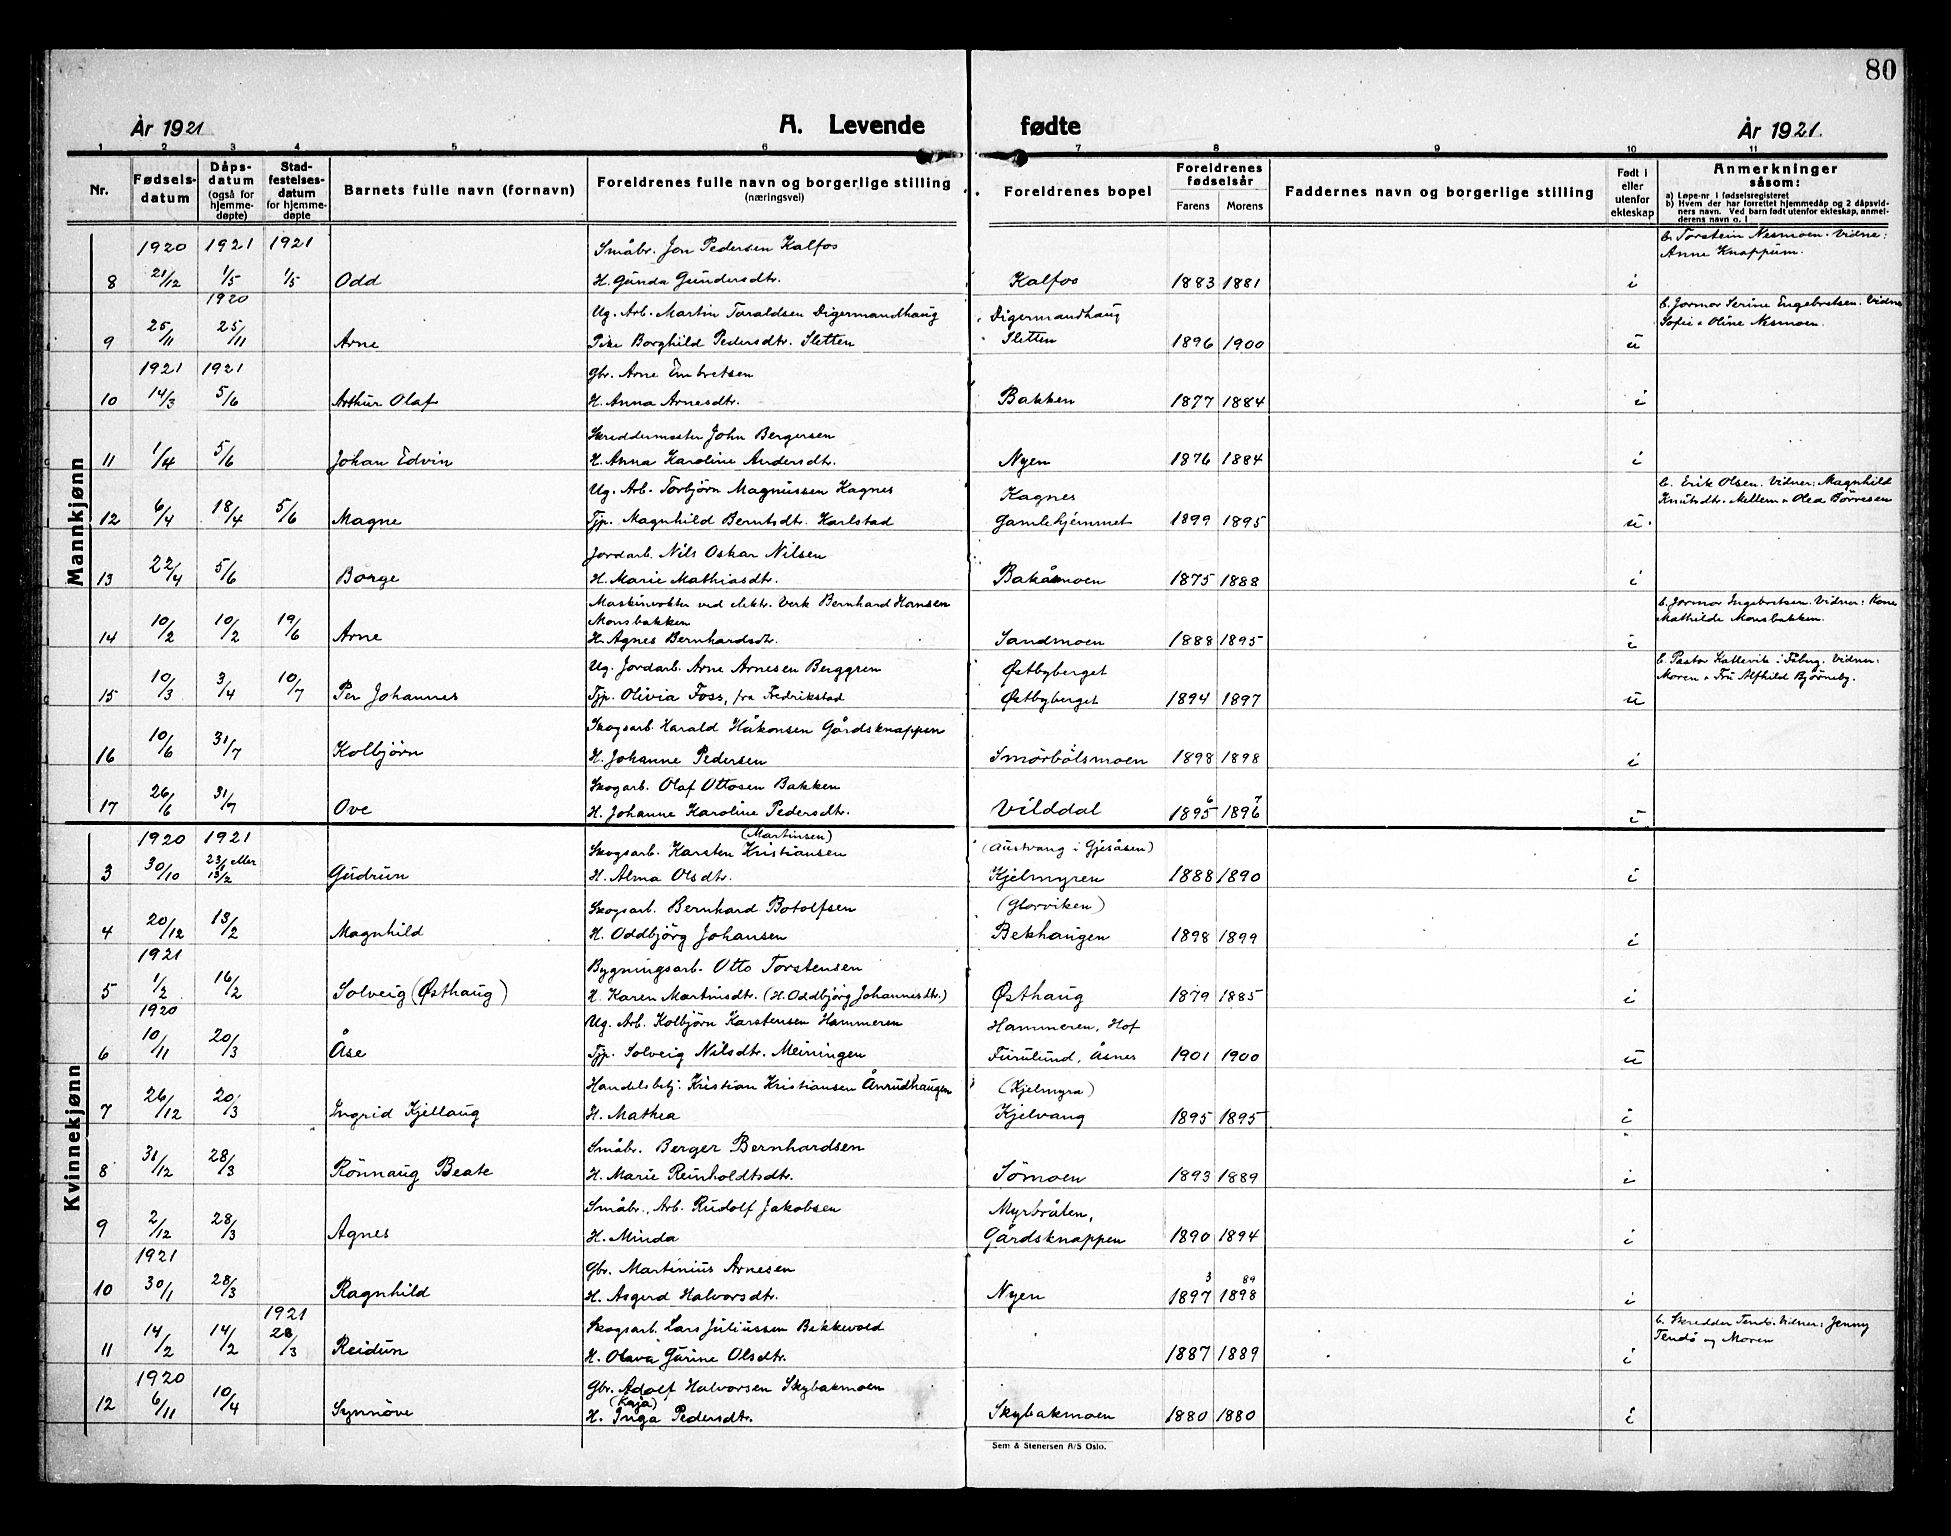 80
År 1921 A. Levende fødte År 1921.
1 2 3 4 5 6 7 8 9 10 11
Nr. Fødselsdatum Dåpsdatum (også for hjemmedøpte) Stadfestelsesdatum for hjemmedøpte Barnets fulle navn (fornavn) Foreldrenes fulle navn og borgerlige stilling (næringsvei) Foreldrenes bopel Foreldrenes fødselsår Farens Morens Faddernes navn og borgerlige stilling Født i eller utenfor ekteskap Anmerkninger såsom:
a) Løpe-nr i fødselsregisteret
b) Hvem der har forrettet hjemmedåp og 2 dåpsvidners navn. Ved barn født utenfor ekteskap, anmelderens navn o. l
Mannkjønn
1920 1921 1921 Småbr. Jon Pedersen Kalfos b. Torstein Nesmoen. Vidne:
Anne Knappum.
8 21/12 1/5 1/5 Odd H. Gunda Gundersdtr. Kalfos 1883 1881 i
1920
25/11 25/11 Ug. Arb. Martin Taraldsen Digermandhaug Digermandhaug b. Jormor Serine Engebretsen. Vidne
Sofie & Oline Nesmoen.
9 Arne Pike Borghild Pedersdtr. Sletten Sletten 1896 1900 u
1921 1921 Gbr. Arne Embretsen
10 14/3 5/6 Arthur Olaf H. Anna Arnesdtr. Bakken 1877 1884 i
Skreddermester John Bergersen
11 1/4 5/6 Johan Edvin H. Anna Karoline Andersdtr. Nyen 1876 1884 i
Ug. Arb. Torbjörn Magnussen Kagnes Kagnes b. Erik Olsen. Vidner: Magnhild
Knutsdtr. Mellem & Olea Börresen
12 6/4 18/4 5/6 Magne Tjp. Magnhild Berntsdtr. Karlstad Gamlehjemmet 1899 1895 u.
Jordarb. Nils Oskar Nilsen
13 22/4 5/6 Börge H. Marie Mathiasdtr. Bakåsmoen 1875 1888 i
Maskinvokter ved elektr. Verk Bernhard Hansen
Monsbakken b. Jormor Ingebretsen. Vidner: Kone
Mathilde Monsbakken.
14 10/2 10/2 19/6 Arne H. Agnes Bernhardsdtr. Sandmoen 1888 1895 i
Ug. Jordarb. Arne Arnesen Berggren Østbyberget b. Pastor Kallevik i Fsbrg. Vidner:
Moren & Fru Alfhild Bjørneby.
15 10/3 3/4 10/7 Per Johannes Tjp. Olivia Foss, fra Fredrikstad Østbyberget 1894 1897 u
Skogsarb. Harald Håkonsen Gårdsknappen
16 10/6 31/7 Kolbjörn H. Johanne Pedersen Smörbölsmoen 1898 1898 i
Skogarb. Olaf Ottosen Bakken 6 7
17 26/6 31/7 Ove H. Johanne Karoline Pedersdtr. Vilddal 1895 1896 i
Kvinnekjønn
1920 1921 (Martinsen)
Skogsarb. Karsten Kristiansen (Austvang i Gjesåsen)
3 30/10 23/1 eller 13/2 Gudrun H. Alma Olsdtr. Kjelmyren 1888 1890 i
Skogsarb. Bernhard Botolfsen (Glorviken)
4 20/12 13/2 Magnhild H. Oddbjörg Johansen Bekhaugen 1898 1899 i
1921 Bygningsarb. Otto Torstensen
5 1/2 16/2 Solveig (Østhaug) H. Karen Martinsdtr. (H. Oddbjörg Johannesdtr.) Østhaug 1879 1885 i
1920 Ug. Arb. Kolbjörn Karstensen Hammeren Hammeren, Hof
6 10/11 20/3 Åse Tjp. Solveig Nilsdtr. Meiningen Furulund, Åsnes 1901 1900 u
Handelsbetj. Kristian Kristiansen Ånrudhaugen (Kjelmyra)
7 26/12 20/3 Ingrid Kjellaug H. Mathea Kjelvang 1895 1895 i
Småbr. Berger Bernhardsen
8 31/12 28/3 Rönnaug Beate H. Marie Reinholdtsdtr. Sömoen 1893 1889 i
Småbr., Arb. Rudolf Jakobsen Myrbråten,
9 2/12 28/3 Agnes H. Minda Gårdsknappen 1890 1894 i
1921 Gbr. Martinius Arnesen 3 89
10 30/1 28/3 Ragnhild H. Asgerd Halvorsdtr. Nyen 1897 1898 i
1921 Skogsarb. Lars Juliussen Bekkevold b. Skredder Tendö. Vidner: Jenny
Tendö og Moren
11 14/2 14/2 28/3 Reidun H. Olava Gurine Olsdtr. 1887 1889 i
1920 Gbr. Adolf Halvorsen Skybakmoen
(Kaja)
12 6/11 10/4 Synnöve H. Inga Pedersdtr. Skybakmoen 1880 1880 i
Sem & Stenersen A/S Oslo.